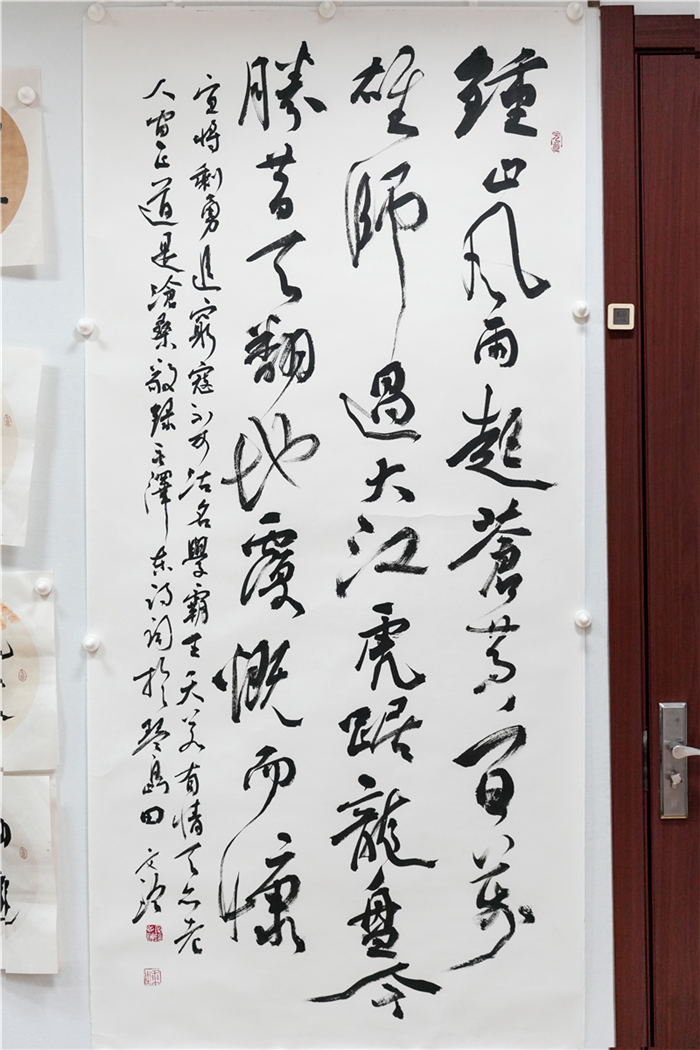 鍾山风雨起蒼黃百萬
雄師過大江虎踞龍盤今
勝昔天翻地覆慨而慷
宜將剩勇追窮寇不可沽名學霸王天若有情天亦老
人間正道是滄桑敬錄毛澤东诗词於琴島田文